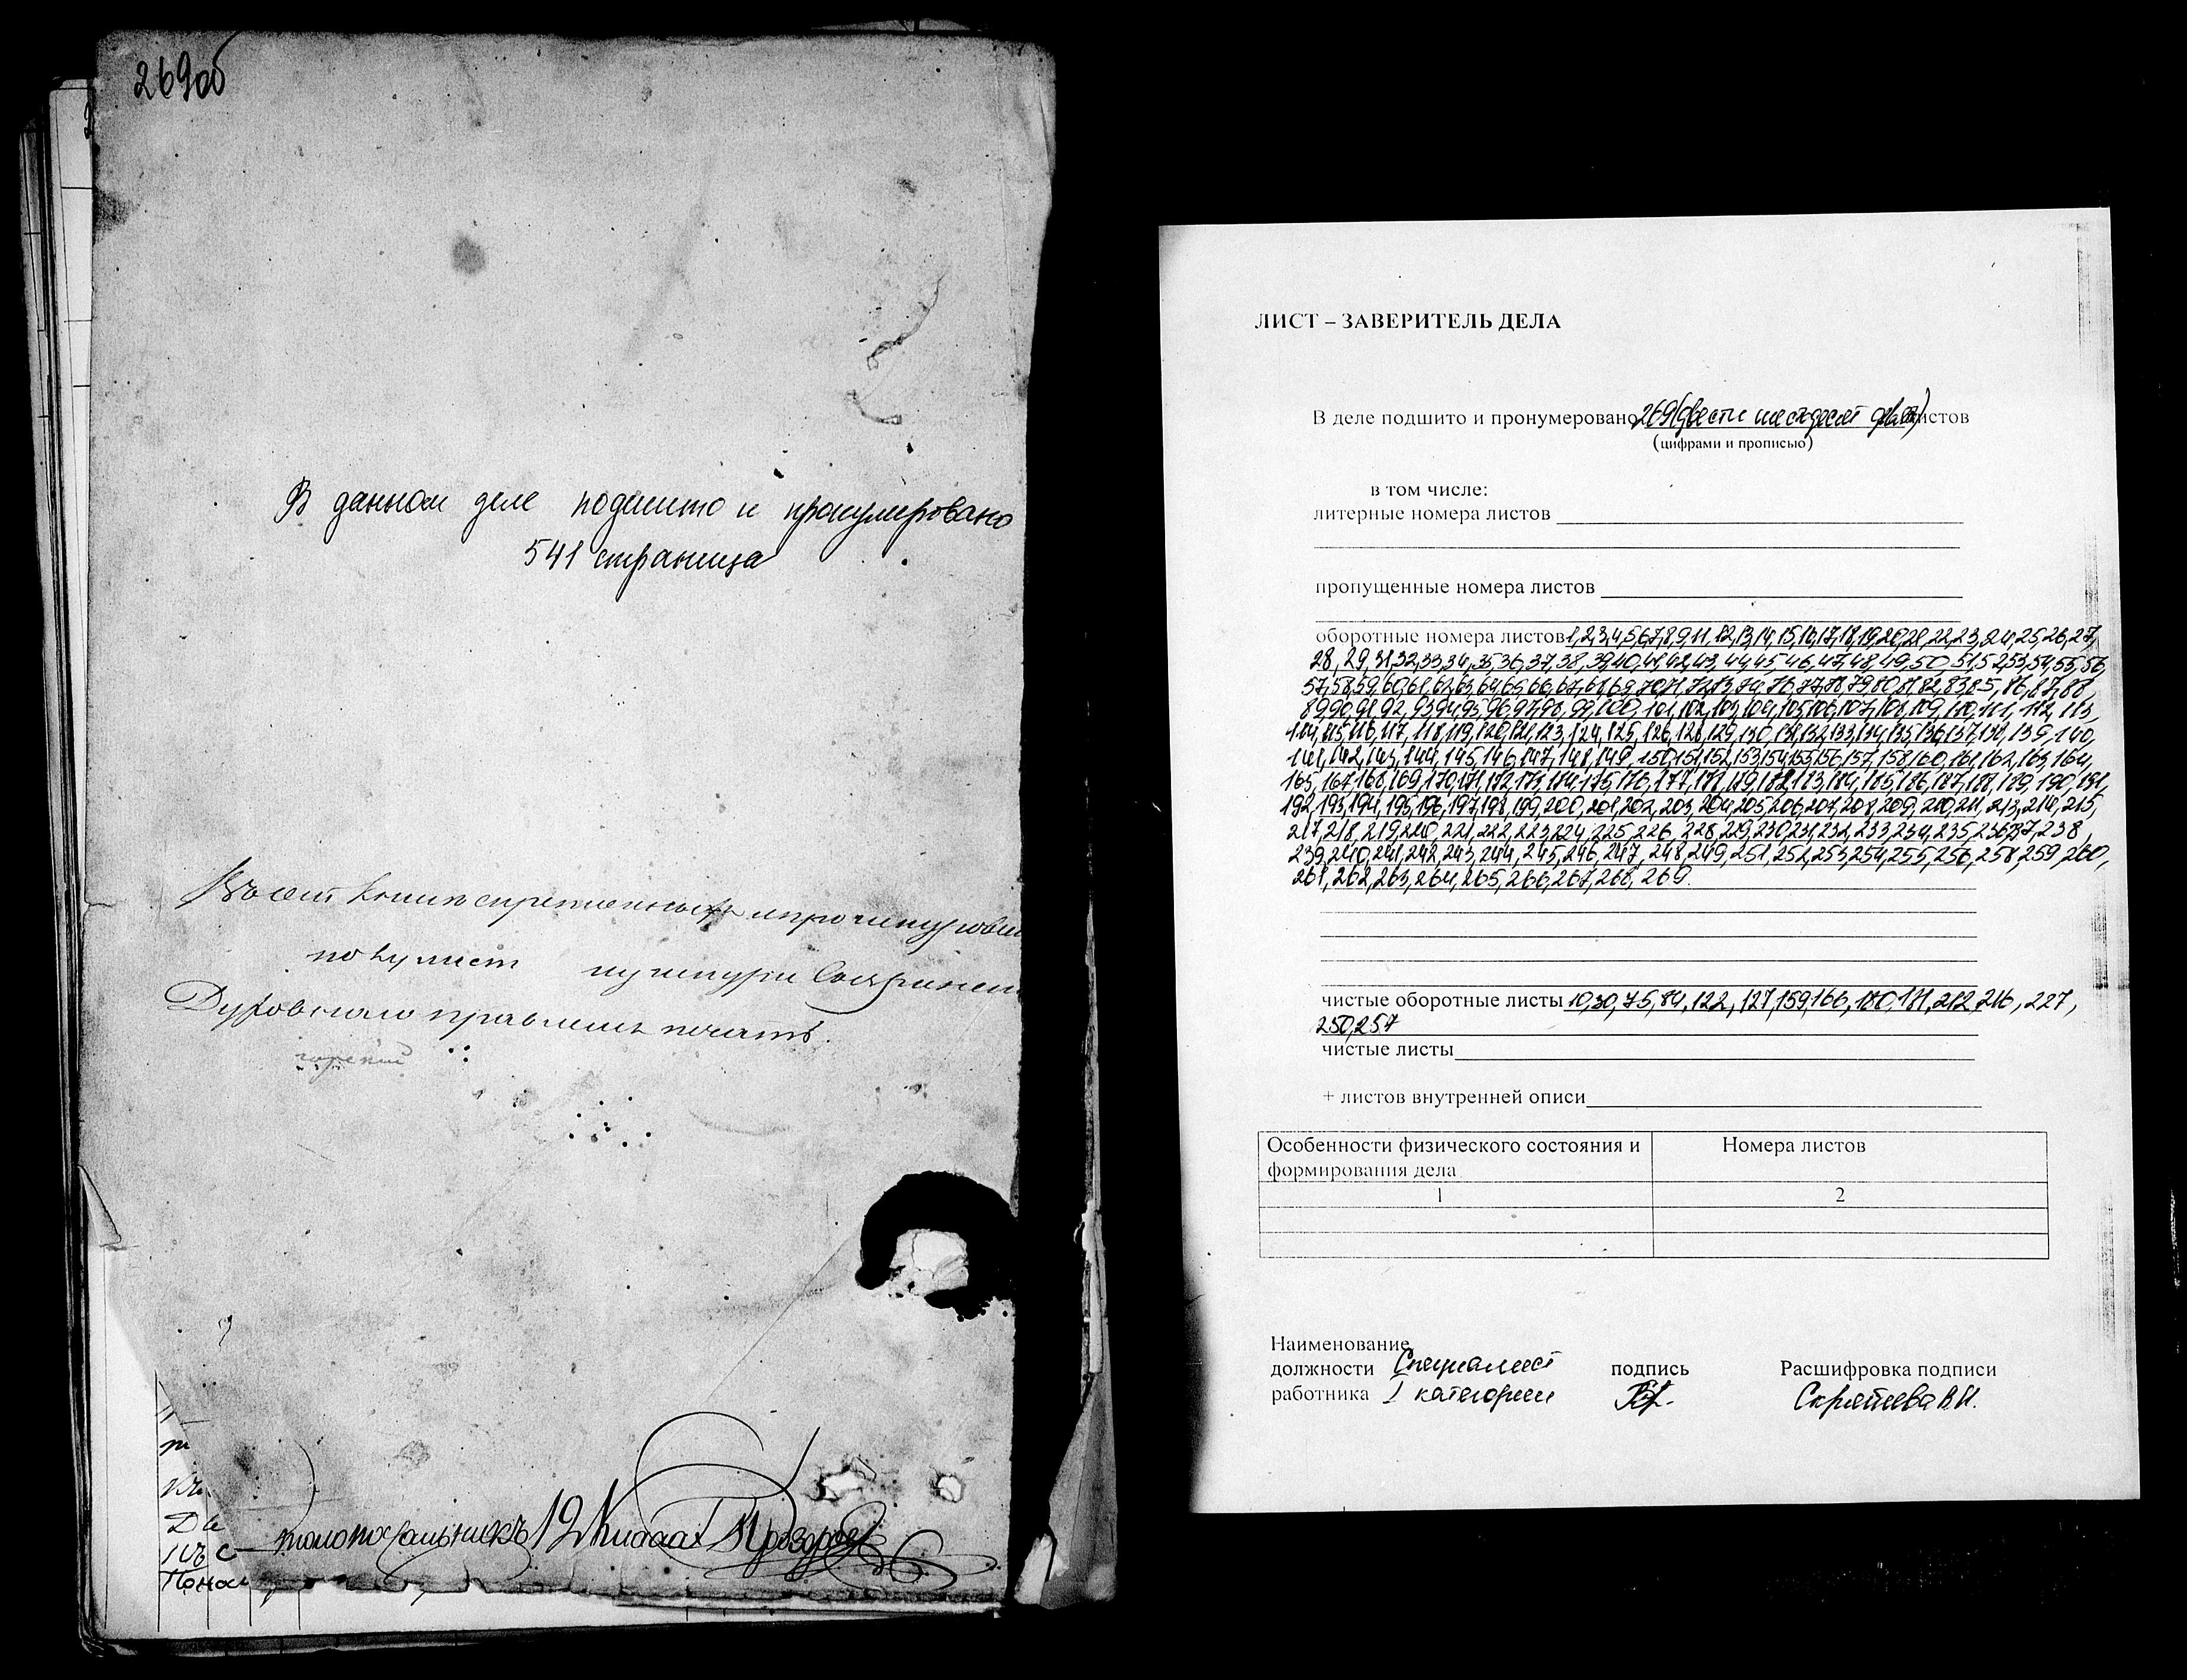 269об
В данном деле подшито и пронумеровано
541 страница
Въ сей книге скрепленных и пронумерован
по листу
Духовного правления печать.
столоначальникъ 12 класса
ЛИСТ – ЗАВЕРИТЕЛЬ ДЕЛА
В деле подшито и пронумеровано 269 (двести шестьдесят девять) листов
(цифрами и прописью)
в том числе:
литерные номера листов
пропущенные номера листов
оборотные номера листов 1,2,3,4,5,6,7,8,9,11,12,13,14,15,16,17,18,19,20,21,22,23,24,25,26,27,
28,29,31,32,33,34,35,36,37,38,39,40,41,42,43,44,45,46,47,48,49,50,51,52,53,54,55,56,
57,58,59,60,61,62,63,64,65,66,67,68,69,70,71,72,73,74,76,77,78,79,80,81,82,83,85,86,87,88,
89,90,91,92,93,94,95,96,97,98,99,100,101,102,103,104,105,106,107,108,109,110,111,112,113,
114,115,116,117,118,119,120,121,123,124,125,126,128,129,130,131,132,133,134,135,136,137,138,139,140,
141,142,143,144,145,146,147,148,149,150,151,152,153,154,155,156,157,158,160,161,162,163,164,
165,167,168,169,170,171,172,173,174,175,176,177,178,179,182,183,184,185,186,187,188,189,190,191,
192,193,194,195,196,197,198,199,200,201,202,203,204,205,206,207,208,209,210,211,213,214,215,
217,218,219,220,221,222,223,224,225,226,228,229,230,231,232,233,234,235,236,237,238,
239,240,241,242,243,244,245,246,247,248,249,251,252,253,254,255,256,258,259,260,
261,262,263,264,265,266,267,268,269.
чистые оборотные листы 10,30,75,84,122,127,159,166,180,181,212,216,227,
250,257
чистые листы
+ листов внутренней описи
Особенности физического состояния и Номера листов
формирования дела
1 2
Наименование
должности Специалист подпись Расшифровка подписи
работника I категории Скрятеева В.И.